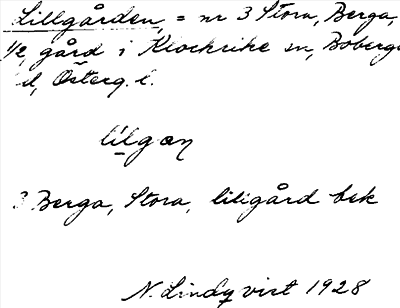 Lillgården, = nr 3 Stora, Berga,
1/2 gård i Klockrike sn, Bobergs
d, Österg. l.
lilgœn
3 Berga, Stora, liligård bek
N. Lindqvist 1928